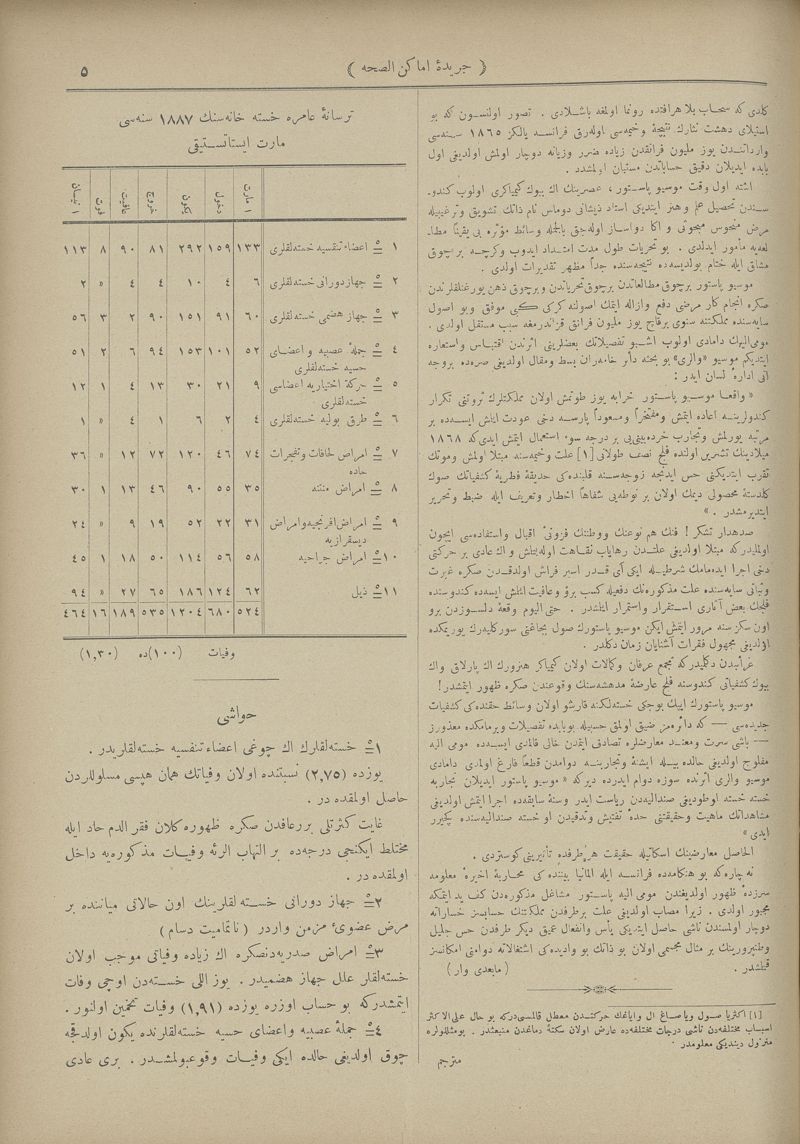 ﴿ جريدۀ اماكن الصحه ﴾
٥
كلدى كه سحاب بلا هر افقده رونما اولمغه باشلادى . تصور اولنسون كه بو
استيلاى دهشت نثارك نتيجۀ وخيمه‌سى اوله‌رق فرانسه يالكز ١٨٦٥ سنه‌سى
وارداتندن يوز مليون فرانقدن زياده ضرر وزيانه دوچار اولمش اولديغى اول
بابده ايديلان دقيق حساباتدن مستبان اولمشدر .
اشته اول وقت موسيو پاستور ، عصرينك اك بيوك كيمياكرى اولوب كندو-
سندن تحصيل علم و هنر ايتديكى استاد ذيشانى دوماس نام ذاتك تشويق وترغيبيله
مرض منحوس مبحوثى و اكا دواساز اوله‌جق بالجمله وسائط مؤثره‌يى يقيناً مطا-
لعه‌يه مأمور ايدلدى . بو تحريات طول مدت امتداد ايدوب وكرچه برچوق
مشاق ايله ختام بولديسه‌ده نتيجه‌سنده جداً مظهر تقديرات اولدى .
موسيو پاستور برچوق مطالعاتدن برچوق تحرياتدن و برچوق ذهن يورغنلقلرندن
صكره انجام كار مرضى دفع وازاله ايتمك اصولنه كركى كبى موفق وبو اصول
سايه‌سنده مملكتنه سنوى برقاچ يوز مليون فرانق قزاندرمغه سبب مستقل اولدى .
مومى‌اليهك دامادى اولوب اشبو تفصيلاتك بعضلرينى اثرندن اقتباس واستعاره
ايتديكم موسيو «والرى» بو بحثه دائر خامه‌ران بسط ومقال اولديغى صره‌ده بروجه
آتى ادارۀ لسان ايدر :
« واقعا موسيو پاستور خرابه يوز طوتمش اولان مملكتلرك ثروتنى تكرار
كندولرينه اعاده ايتمش ومفتخراً ومسعوداً پارسه دخى عودت ايتمش ايسه‌ده بر
مرتبه يورلمش وتجارب خرده‌بينى‌يى بر درجه سوء استعمال ايتمش ايدى‌كه ١٨٦٨
ميلادينك تشرين اولنده فلج نصف طولانى [١] علت وخيمه‌سنه مبتلا اولمش وموتك
تقرب ايتديكنى حس ايدنجه زوجه‌سنه قلبنده‌كى حديقۀ فطريۀ كشفياتك صوك
كلدستۀ محصولى ديمك اولان بر نوطه‌يى شفاهاً اخطار وتعريف ايله ضبط وتحرير
ايتديرمشدر . »
صدهدار تشكر ! فنك هم نوعنك ووطننك فزونئ اقبال واستفاده‌سى ايچون
اولميدركه مبتلا اولديغى علتدن رهاياب نقاهت اوله‌بلمش واك عادى بر حركتى
دخى اجرا ايده‌مامك شرطيله ايكى آى قدر اسير فراش اولدقدن صكره غيرت
وثباتى سايه‌سنده علت مذكوره‌نك دفعيله كسب برؤ وعافيت ايلمش ايسه‌ده كندوسنده
فلجك بعض آثارى استقرار واستمرار ايلمشدر . حتى اليوم وقعۀ دلسوزدن برو
اون سكز سنه مرور ايتمش ايكن موسيو پاستورك صول بجاغنى سوركليه‌رك يوريمكده
اولديغى مجهول فقرات آشنايان زمان دكلدر .
غرائبدن دكليدركه مجمع عرفان وكمالات اولان كيمياكر هنرورك اك پارلاق واك
بيوك كشفياتى كندوسنه فلج عارضۀ مدهشه‌سنك وقوعندن صكره ظهور ايتمشدر !
موسيو پاستورك ايپك بوجكى خسته‌لكنه قارشو اولان وسائط حقنده‌كى كشفيات
جديده‌سى — كه دائره‌مز ضيق اولمق حسبيله بوبابده تفصيلات ويرمامكده معذورز
— باشى سرت ومعتد معارضلره تصادف ايتمدن خالى قالمدى ايسه‌ده مومى اليه
مفلوج اولديغى حالده بيله ايشنه وتجاربنه دوامدن قطعاً فارغ اولمدى دامادى
موسيو والرى اثرنده سوزه دوام ايدرده ديركه « موسيو پاستور ايديلان تجاربه
خسته خسته اوطوديغى صنداليه‌دن رياست ايدر وسنۀ سابقه‌ده اجرا ايتمش اولديغى
مشاهداتك ماهيت وحقيقتنى حدۀ تفتيش وتدقيقدن او خسته صنداليه‌سنده كچيرر
ايدى »
الحاصل معارضينك اسكاتيله حقيقت هر طرفده تأثيرينى كوستردى .
نه چاره‌كه بو هنكامه‌ده فرانسه ايله المانيا بيننده كى محاربۀ اخيرۀ معلومه
سرزدۀ ظهور اولديغندن مومى اليه پاستور مشاغل مذكوره‌دن كف يد ايتمكه
مجبور اولدى . زيرا مصاب اولديغى علت برطرفدن مملكتنك حسابسز خساراته
دوچار اولمسندن ناشى حاصل ايتديكى يأس وانفعال عميق ديكر طرفدن حس جليل
وطنپرورينك بر مثال مجسمى اولان بو ذاتك بو واديده‌كى اشتغالاته دوامنى امكانسز
قيلمشدر .
( مابعدى وار )
[١] اكثريا صول وياصاغ ال واياغك حركتسدن معطل قالمسى‌دركه بو حال على‌الاكثر
اسباب مختلفه‌دن ناشى درجات مختلفه‌ده عارض اولان سكتۀ دماغدن منبعثدر . بومثللولره
منزول دينديكى معلومدر .
مترجم
ترسانۀ عامره خسته خانه‌سنك ١٨٨٧ سنه‌سى
مارت ايستاتستيقى
١ مارت دخول يكون خروج عافيت فوت ١ نيسان
١ نه اعضاء تنفسيه خسته‌لقلرى ١٣٣ ١٥٩ ٢٩٢ ٨١ ٩٠ ٨ ١١٣
٢ نه جهاز دورانى خسته‌لقلرى ٦ ٤ ١٠ ٤ ٤ » ٢
٣ نه جهاز هضمى خسته‌لقلرى ٦٠ ٩١ ١٥١ ٩٠ ٢ ٣ ٥٦
٤ نه جملۀ عصبيه و اعضاى حسيه خسته‌لقلرى ٥٢ ١٠١ ١٥٣ ٩٤ ٦ ٢ ٥١
٥ نه حركۀ اختياريه اعضاسى خسته‌لقلرى ٩ ٢١ ٣٠ ١٣ ٤ ١ ١٢
٦ نه طرق بوليه خسته‌لقلرى ٤ ٢ ٦ ١ ٤ » ١
٧ نه امراض لحافات وتفجرات حاده ٧٤ ٤٦ ١٢٠ ٧٢ ١٢ » ٣٦
٨ نه امراض منتنه ٣٥ ٥٥ ٩٠ ٤٦ ١٣ ١ ٣٠
٩ نه امراض افرنجيه وامراض ديسقرازيه ٣١ ٢٢ ٥٢ ١٩ ٩ » ٢٤
١٠ نه امراض جراحيه ٥٨ ٥٦ ١١٤ ٥٠ ١٨ ١ ٤٥
١١ نه ذيل ٦٢ ١٢٤ ١٨٦ ٦٥ ٢٧ » ٩٤
٥٢٤ ٦٨٠ ١٢٠٤ ٥٣٥ ١٨٩ ١٦ ٤٦٤
وفيات (١٠٠)ده (١,٣٠)
حواشى
١نه خسته‌لقلرك اك چوغى اعضاء تنفسيه خسته‌لقلريدر .
يوزده (٢,٧٥) نسبتنده اولان وفياتك همان هپسى مسلوللردن
حاصل اولمقده در .
غايت كثرتلى بررعافدن صكره ظهوره كلان فقر الدم حاد ايله
مختلط ايكنجى درجه‌ده بر التهاب الرئه وفيات مذكوره‌يه داخل
اولمقده در .
٢نه جهاز دورانى خسته‌لقلرينك اون حالاتى مياننده بر
مرض عضوئ مزمن واردر ( ناتماميت دسام )
٣نه امراض صدريه‌دنصكره اك زياده وفياتى موجب اولان
خسته‌لقلر علل جهاز هضميدر . يوز اللى خسته‌دن اوچى وفات
ايتمشدركه بو حساب اوزره يوزده (١,٩١) وفيات تخمين اولنور .
٤نه جملۀ عصبيه واعضاى حسيه خسته‌لقلرنده يكون اولدقجه
چوق اولديغى حالده ايكى وفيات وقوعبولمشدر . برى عادى